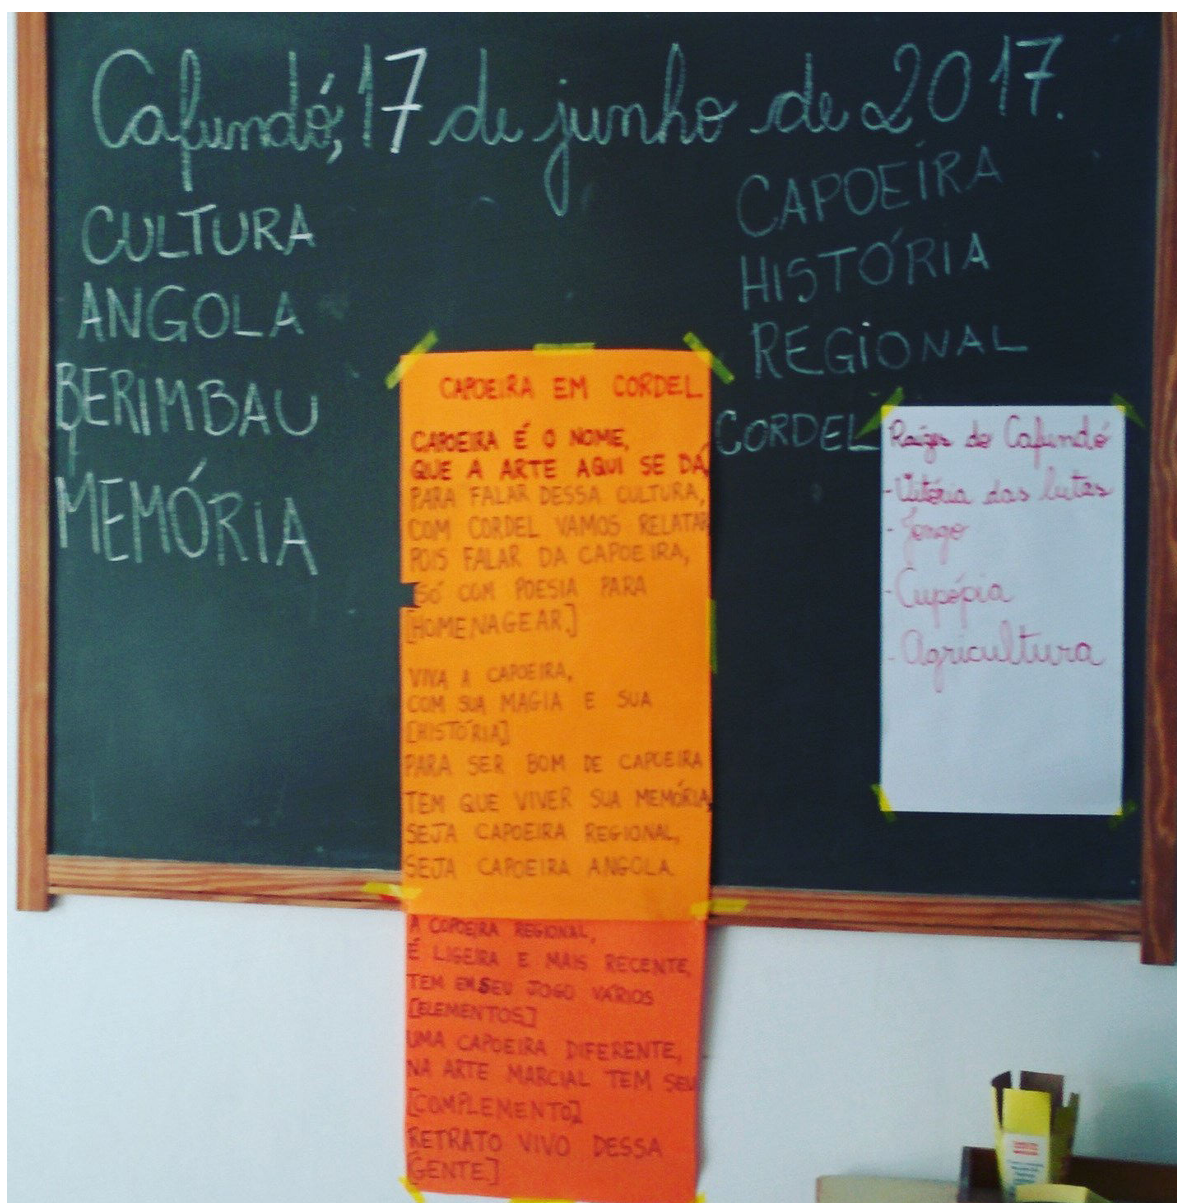 Cafundó, 17 de junho de 2017.
CULTURA
ANGOLA
BERIMBAU
MEMÓRIA
CAPOEIRA
HISTÓRIA
REGIONAL
CORDEL
CAPOEIRA EM CORDEL
CAPOEIRA É O NOME,
QUE A ARTE AQUI SE DÁ,
PARA FALAR DESSA CULTURA,
COM CORDEL VAMOS RELATAR
POIS FALAR DA CAPOEIRA,
SÓ COM POESIA PARA
[HOMENAGEAR.]
VIVA A CAPOEIRA,
COM SUA MAGIA E SUA
[HISTÓRIA]
PARA SER BOM DE CAPOEIRA
TEM QUE VIVER SUA MEMÓRIA
SEJA CAPOEIRA REGIONAL,
SEJA CAPOEIRA ANGOLA.
A COPOEIRA REGIONAL,
É LIGEIRA E MAIS RECENTE,
TEM EM SEU JOGO VÁRIOS
[ELEMENTOS,]
UMA CAPOEIRA DIFERENTE,
NA ARTE MARCIAL TEM SEU
[COMPLEMENTO,]
RETRATO VIVO DESSA
[GENTE.]
Raízes do Cafundó
- Vitória das lutas
- Jongo
- Cupópia
- Agricultura